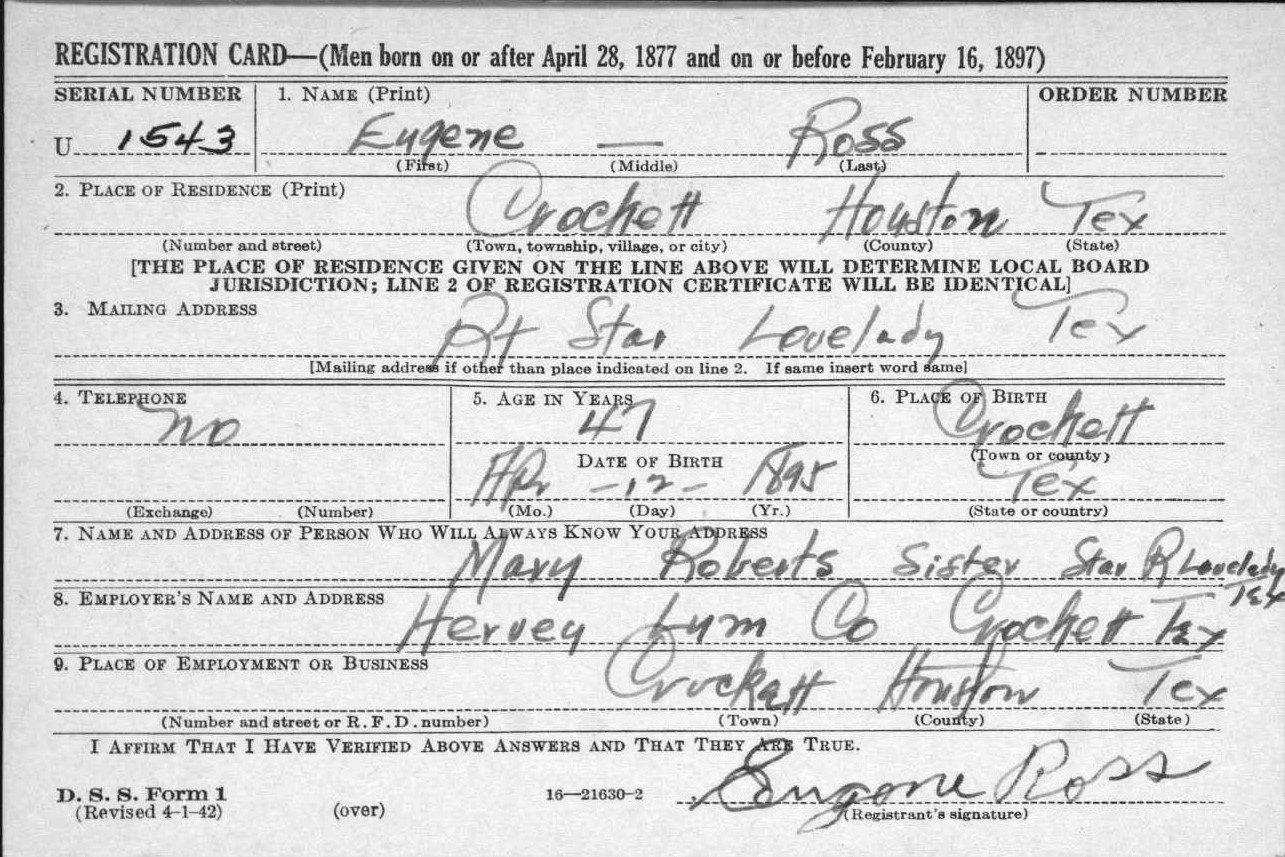 REGISTRATION CARD—(Men born on or after April 28, 1877 and on or before February 16, 1897)
SERIAL NUMBER 1. NAME (Print) ORDER NUMBER
U 1543 Eugene — Ross
(First) (Middle) (Last)
2. PLACE OF RESIDENCE (Print)
Crockett Houston Tex
(Number and street) (Town, township, village, or city) (County) (State)
[THE PLACE OF RESIDENCE GIVEN ON THE LINE ABOVE WILL DETERMINE LOCAL BOARD
JURISDICTION; LINE 2 OF REGISTRATION CERTIFICATE WILL BE IDENTICAL]
3. MAILING ADDRESS
Rt Star Lovelady Tex
[Mailing address if other than place indicated on line 2. If same insert word same]
4. TELEPHONE 5. AGE IN YEARS 6. PLACE OF BIRTH
no 47 Crockett
DATE OF BIRTH (Town or county)
Apr -12- 1895 Tex
(Exchange) (Number) (Mo.) (Day) (Yr.) (State or country)
7. NAME AND ADDRESS OF PERSON WHO WILL ALWAYS KNOW YOUR ADDRESS
Mary Roberts Sister Star R Lovelady
Tex
8. EMPLOYER'S NAME AND ADDRESS
Hervey Lum Co Crockett Tex
9. PLACE OF EMPLOYMENT OR BUSINESS
Crockett Houston Tex
(Number and street or R. F. D. number) (Town) (County) (State)
I AFFIRM THAT I HAVE VERIFIED ABOVE ANSWERS AND THAT THEY ARE TRUE.
D. S. S. Form 1
(Revised 4-1-42) (over) 16—21630-2 Eugene Ross
(Registrant's signature)